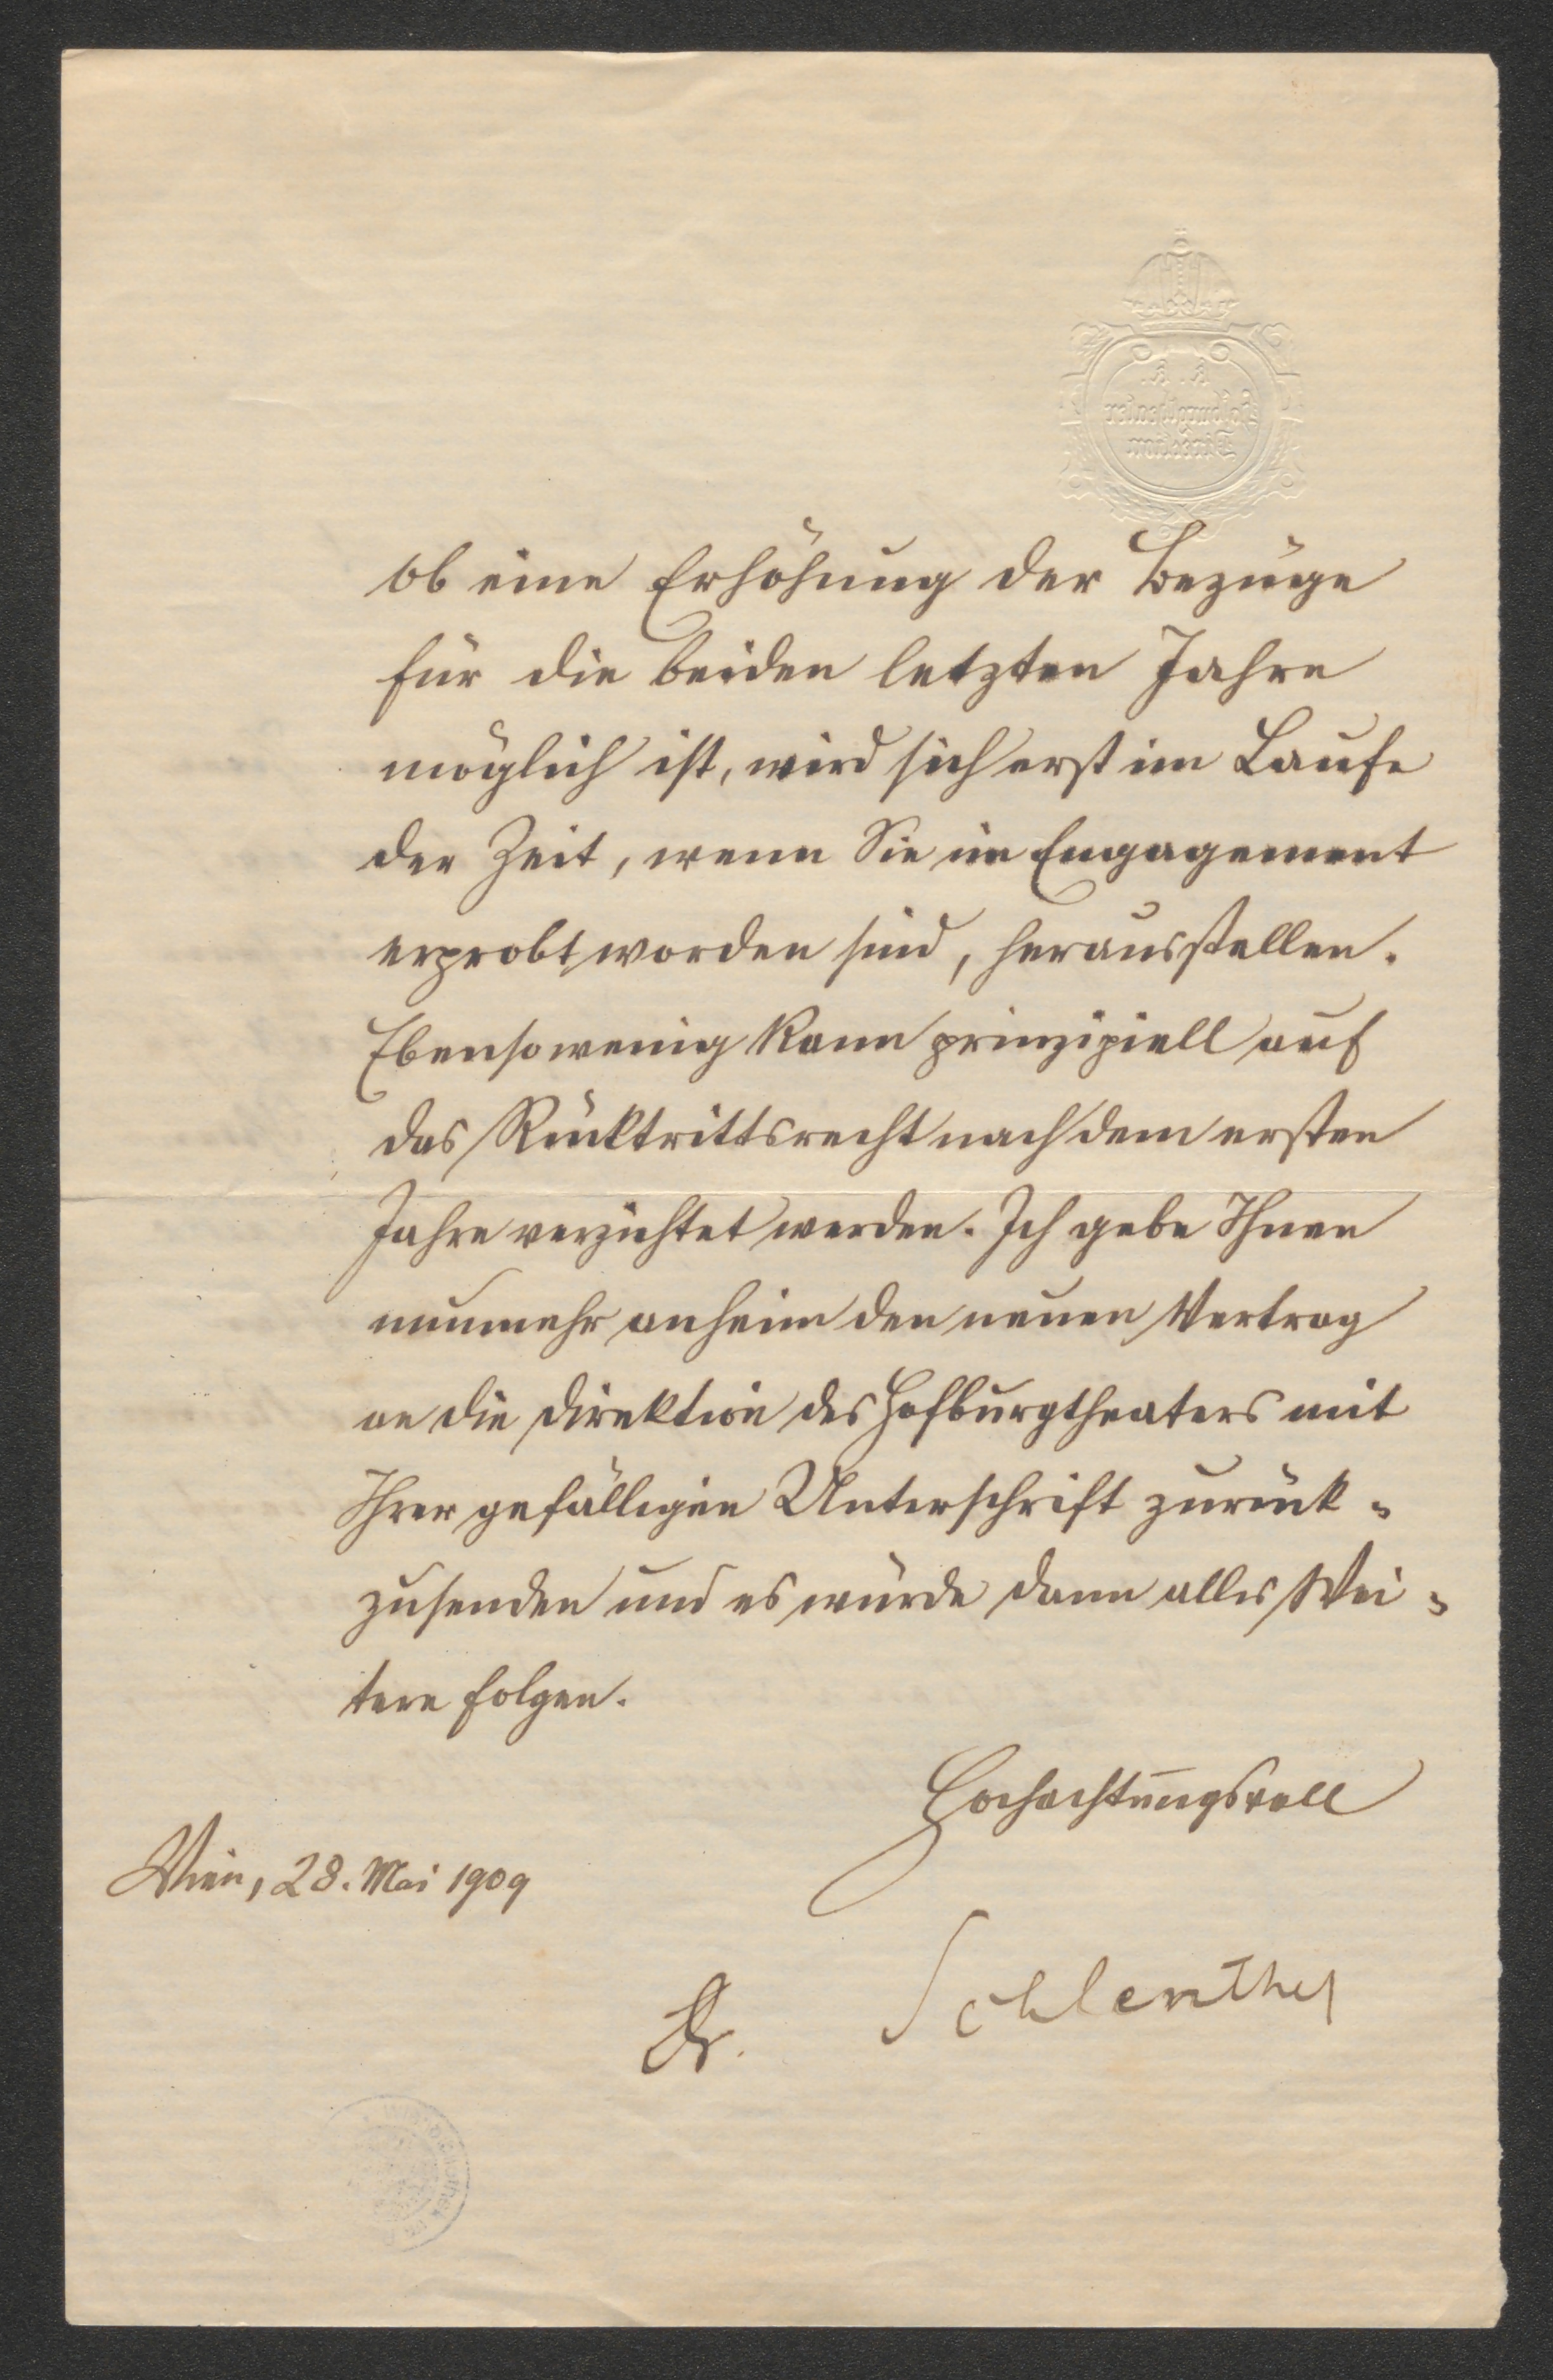 K. K.
Hofburgtheater
Direction
ob eine Erhöhung der Bezüge
für die beiden letzten Jahre
möglich ist, wird sich erst im Laufe
der Zeit, wenn Sie im Engagement
erprobt worden sind, herausstellen.
Ebensowenig kann prinzipiell auf
das Rücktrittsrecht nach dem ersten
Jahre verzichtet werden. Ich gebe Ihnen
nunmehr anheim den neuen Vertrag
an die Direktion des Hofburgtheaters mit
Ihrer gefälligen Unterschrift zurück-
zusenden und es würde dann alles Wei-
tere folgen.
Hochachtungsvoll
Wien, 28. Mai 1909
Dr. Schlenther